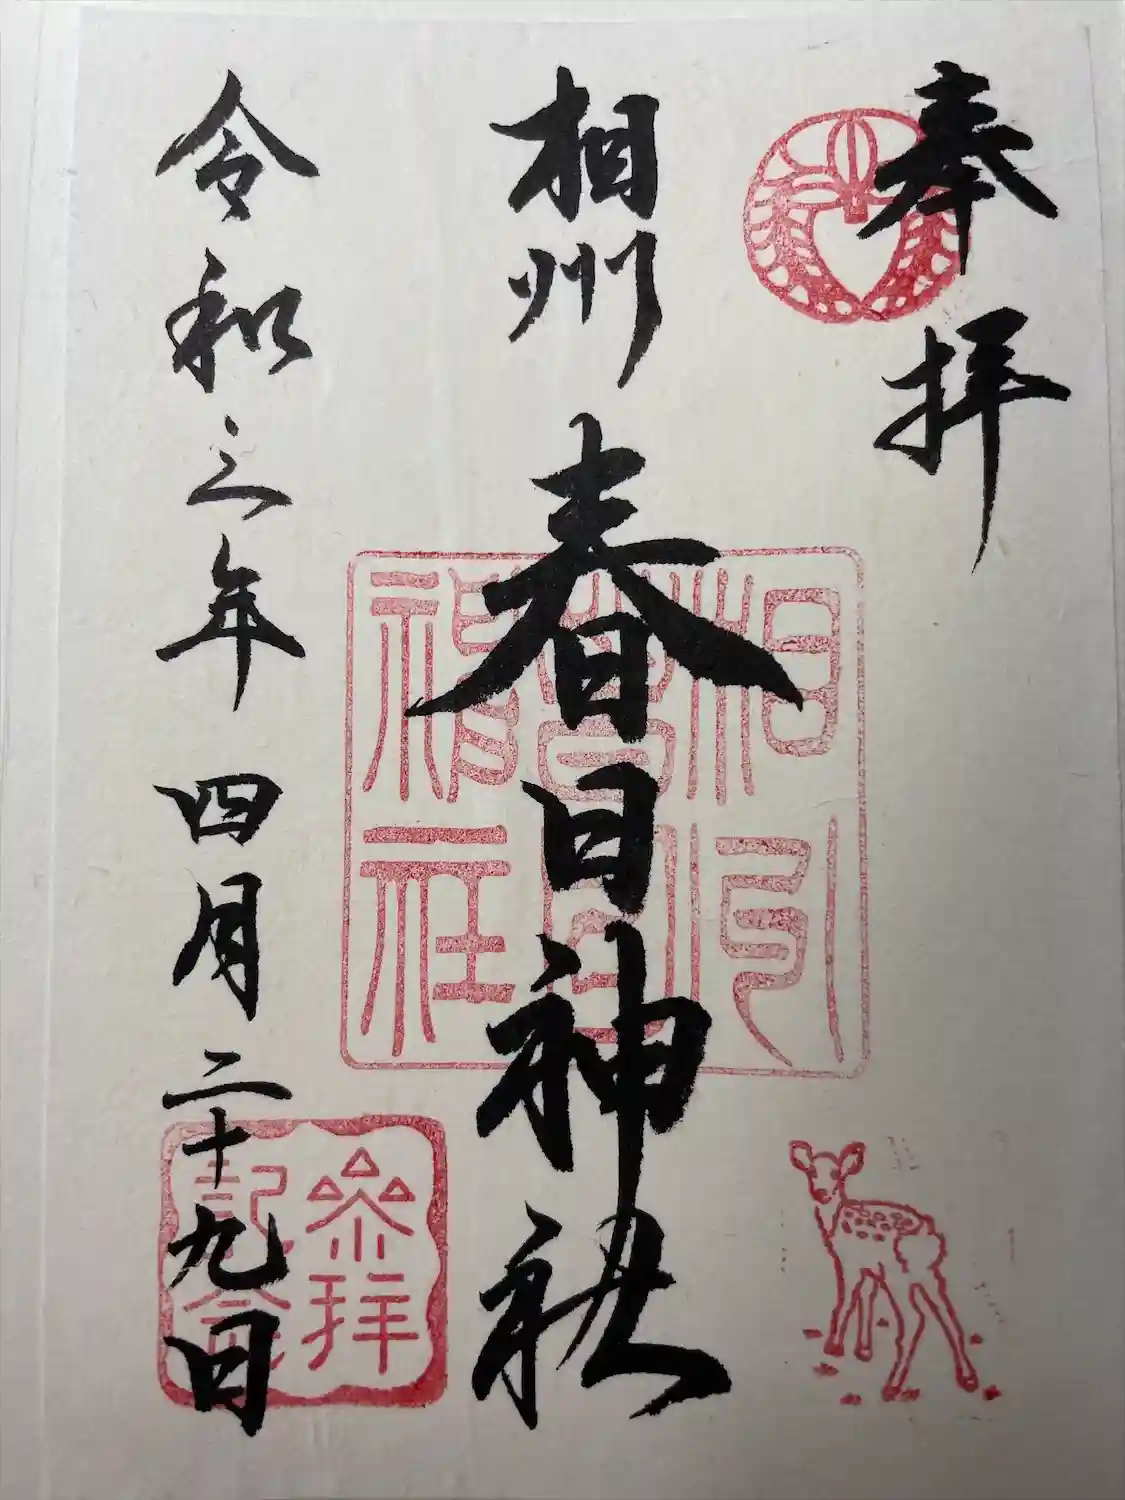 奉拝
相州春日神社
令和三年四月二十九日
相州
春日
神社
参拝
記念